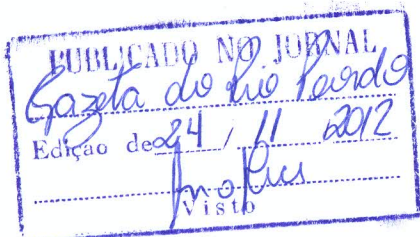 PUBLICADO NO JORNAL
Gazeta do Rio Pardo
Edição de 24 / 11 2012
Visto